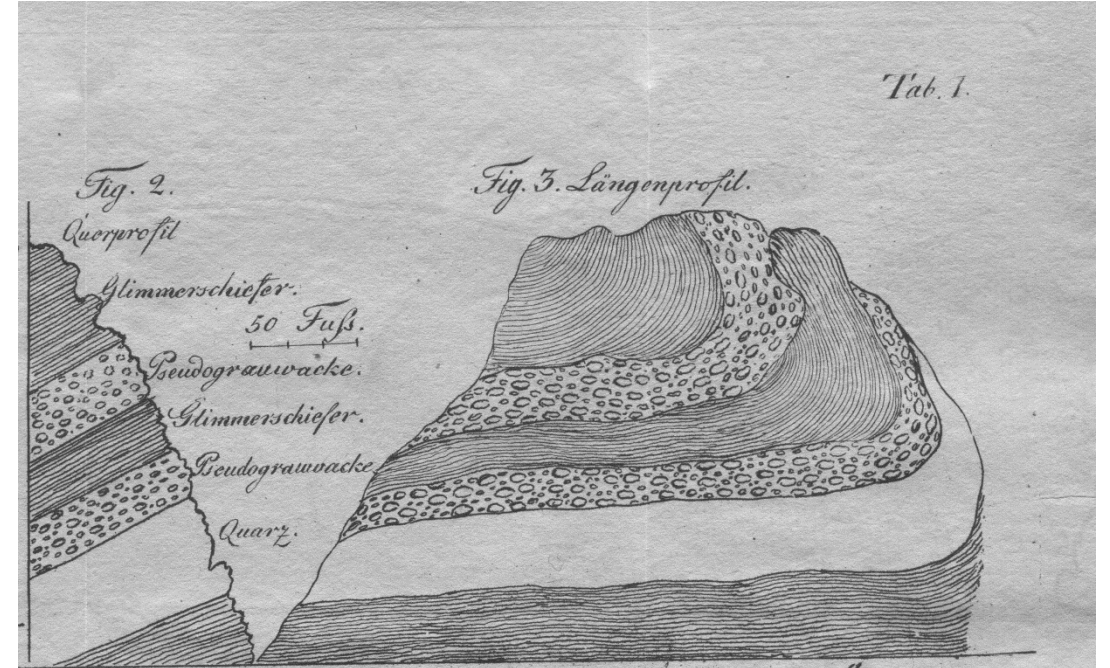 Tab. 1.
Fig. 2.
Querprofil
Glimmerschiefer.
50 Fuſs.
Pseudograuwacke.
Glimmerschiefer.
Pseudograuwacke
Quarz.
Fig. 3. Längenprofil.